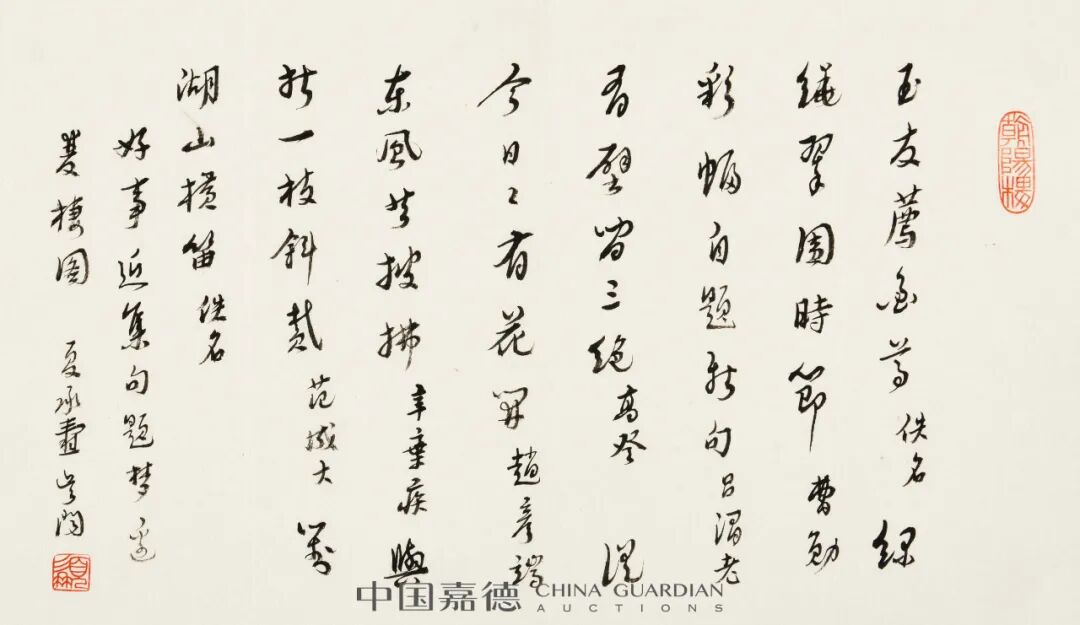 朝陽樓
玉友薦尊 佚名 綠
繞翠圍時節 曹勛
彩幅自題新句 呂渭老
有壁間三絕 高登 從
今日々有花開 趙彥端
東風共披拂 辛棄疾 與
折一枝斜戴 范成大
湖山橫笛 佚名
好事近集句題梦邊
雙棲圖 夏承燾 吴聞
中国嘉德 CHINA GUARDIAN
AUCTIONS